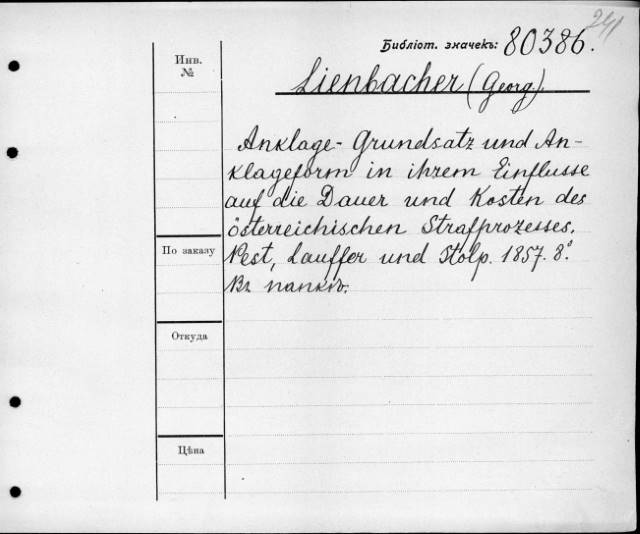 241
Библіот. значекъ: 80386.
Инв. №
Lienbacher (Georg)
Anklage- Grundsatz und An-
klageform in ihrem Einflusse
auf die Dauer und Kosten des
österreichischen Strafprozesses.
По заказу
Pest, Lauffer und Stolp. 1857. 8.°
Въ папкѣ.
Откуда
Цѣна